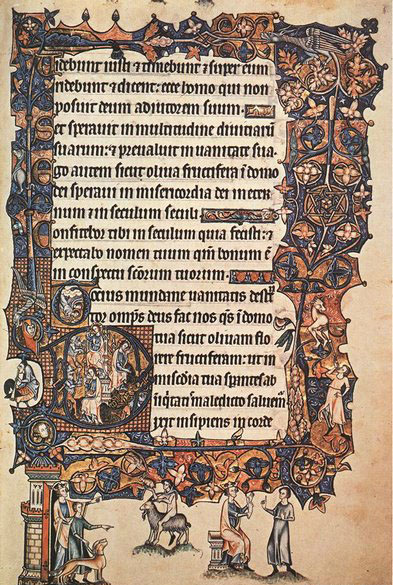 idebunt iusti ⁊ timebunt ⁊ super eum
ridebunt ⁊ dicent: ecce homo qui non
posuit deum adiutorem suum.
Et speravit in multitudine divitiarū
suarum: ⁊ prevaluit in vanitate sua
Ego autem sicut oliva fructifera ī domo
dei speravi in misericordia dei in eter
num ⁊ in seculum seculi
Confitebor tibi in seculum quia fecisti: ⁊
expectabo nomen tuum qm̄ bonum ē
in conspectu sc̄orum tuorum.
mundane vanitatis
tor omp̄s deus fac nos qs̄ ī domo
tua sicut olivam flo
rere fructiferam: ut in
mis̄cdia tua sperantes ab
maledicto salvem̄
ixit insipiens in corde